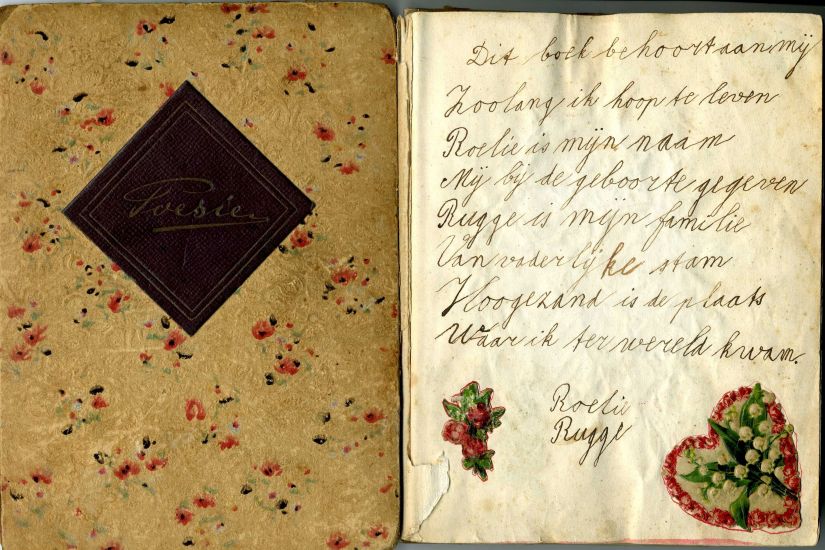 Poesie
Dit boek behoort aan mij
Zoolang ik hoop te leven
Roelie is mijn naam
Mij bij de geboorte gegeven
Rugge is mijn familie
Van vaderlijke stam
Hoogezand is de plaats
Waar ik ter wereld kwam.
Roelie
Rugge